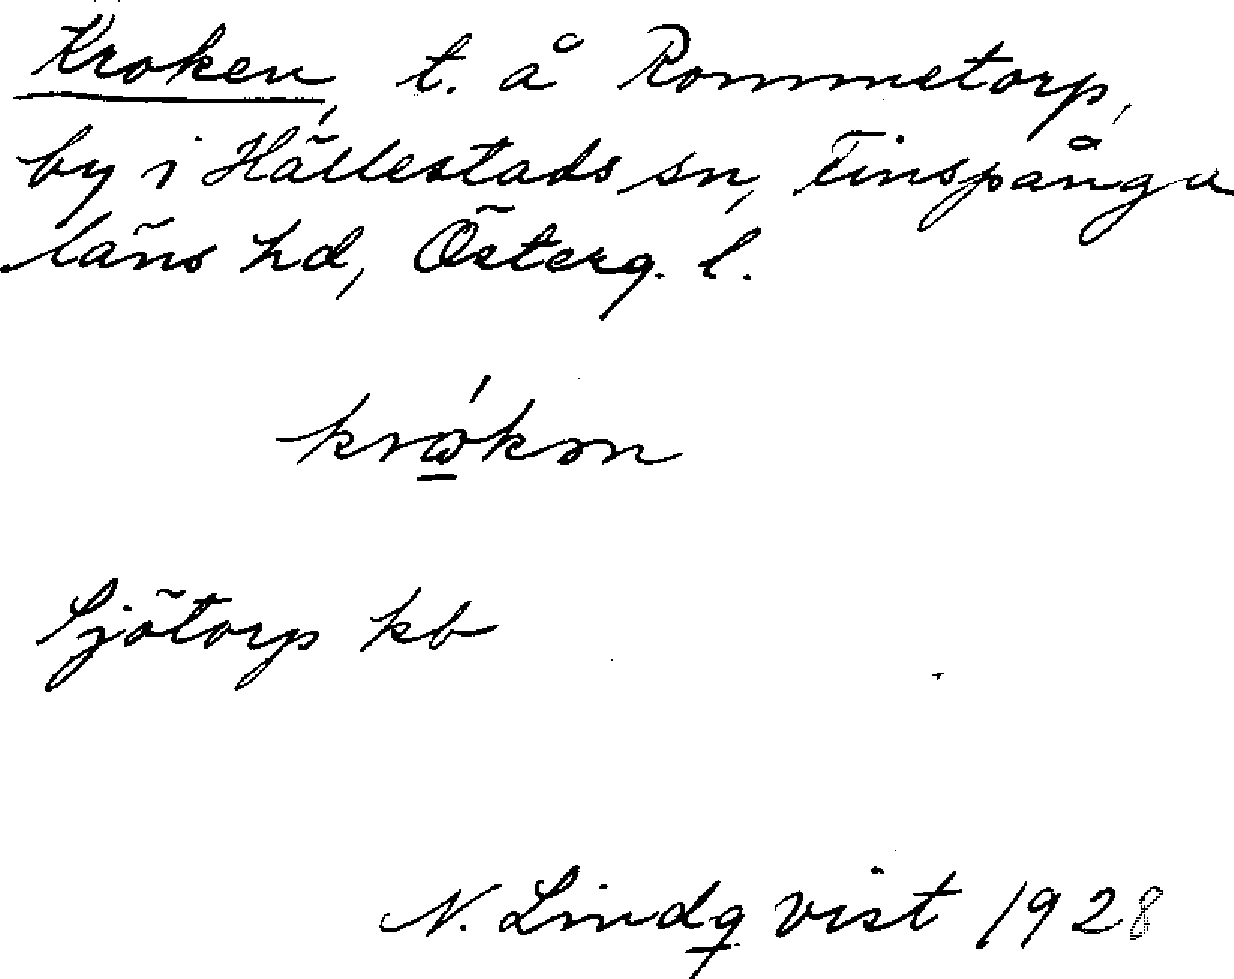 Kroken, t. å Rommetorp,
by i Hällestads sn, Finspånga
läns hd, Österg. l.
Sjötorp kb
N. Lindqvist 1928